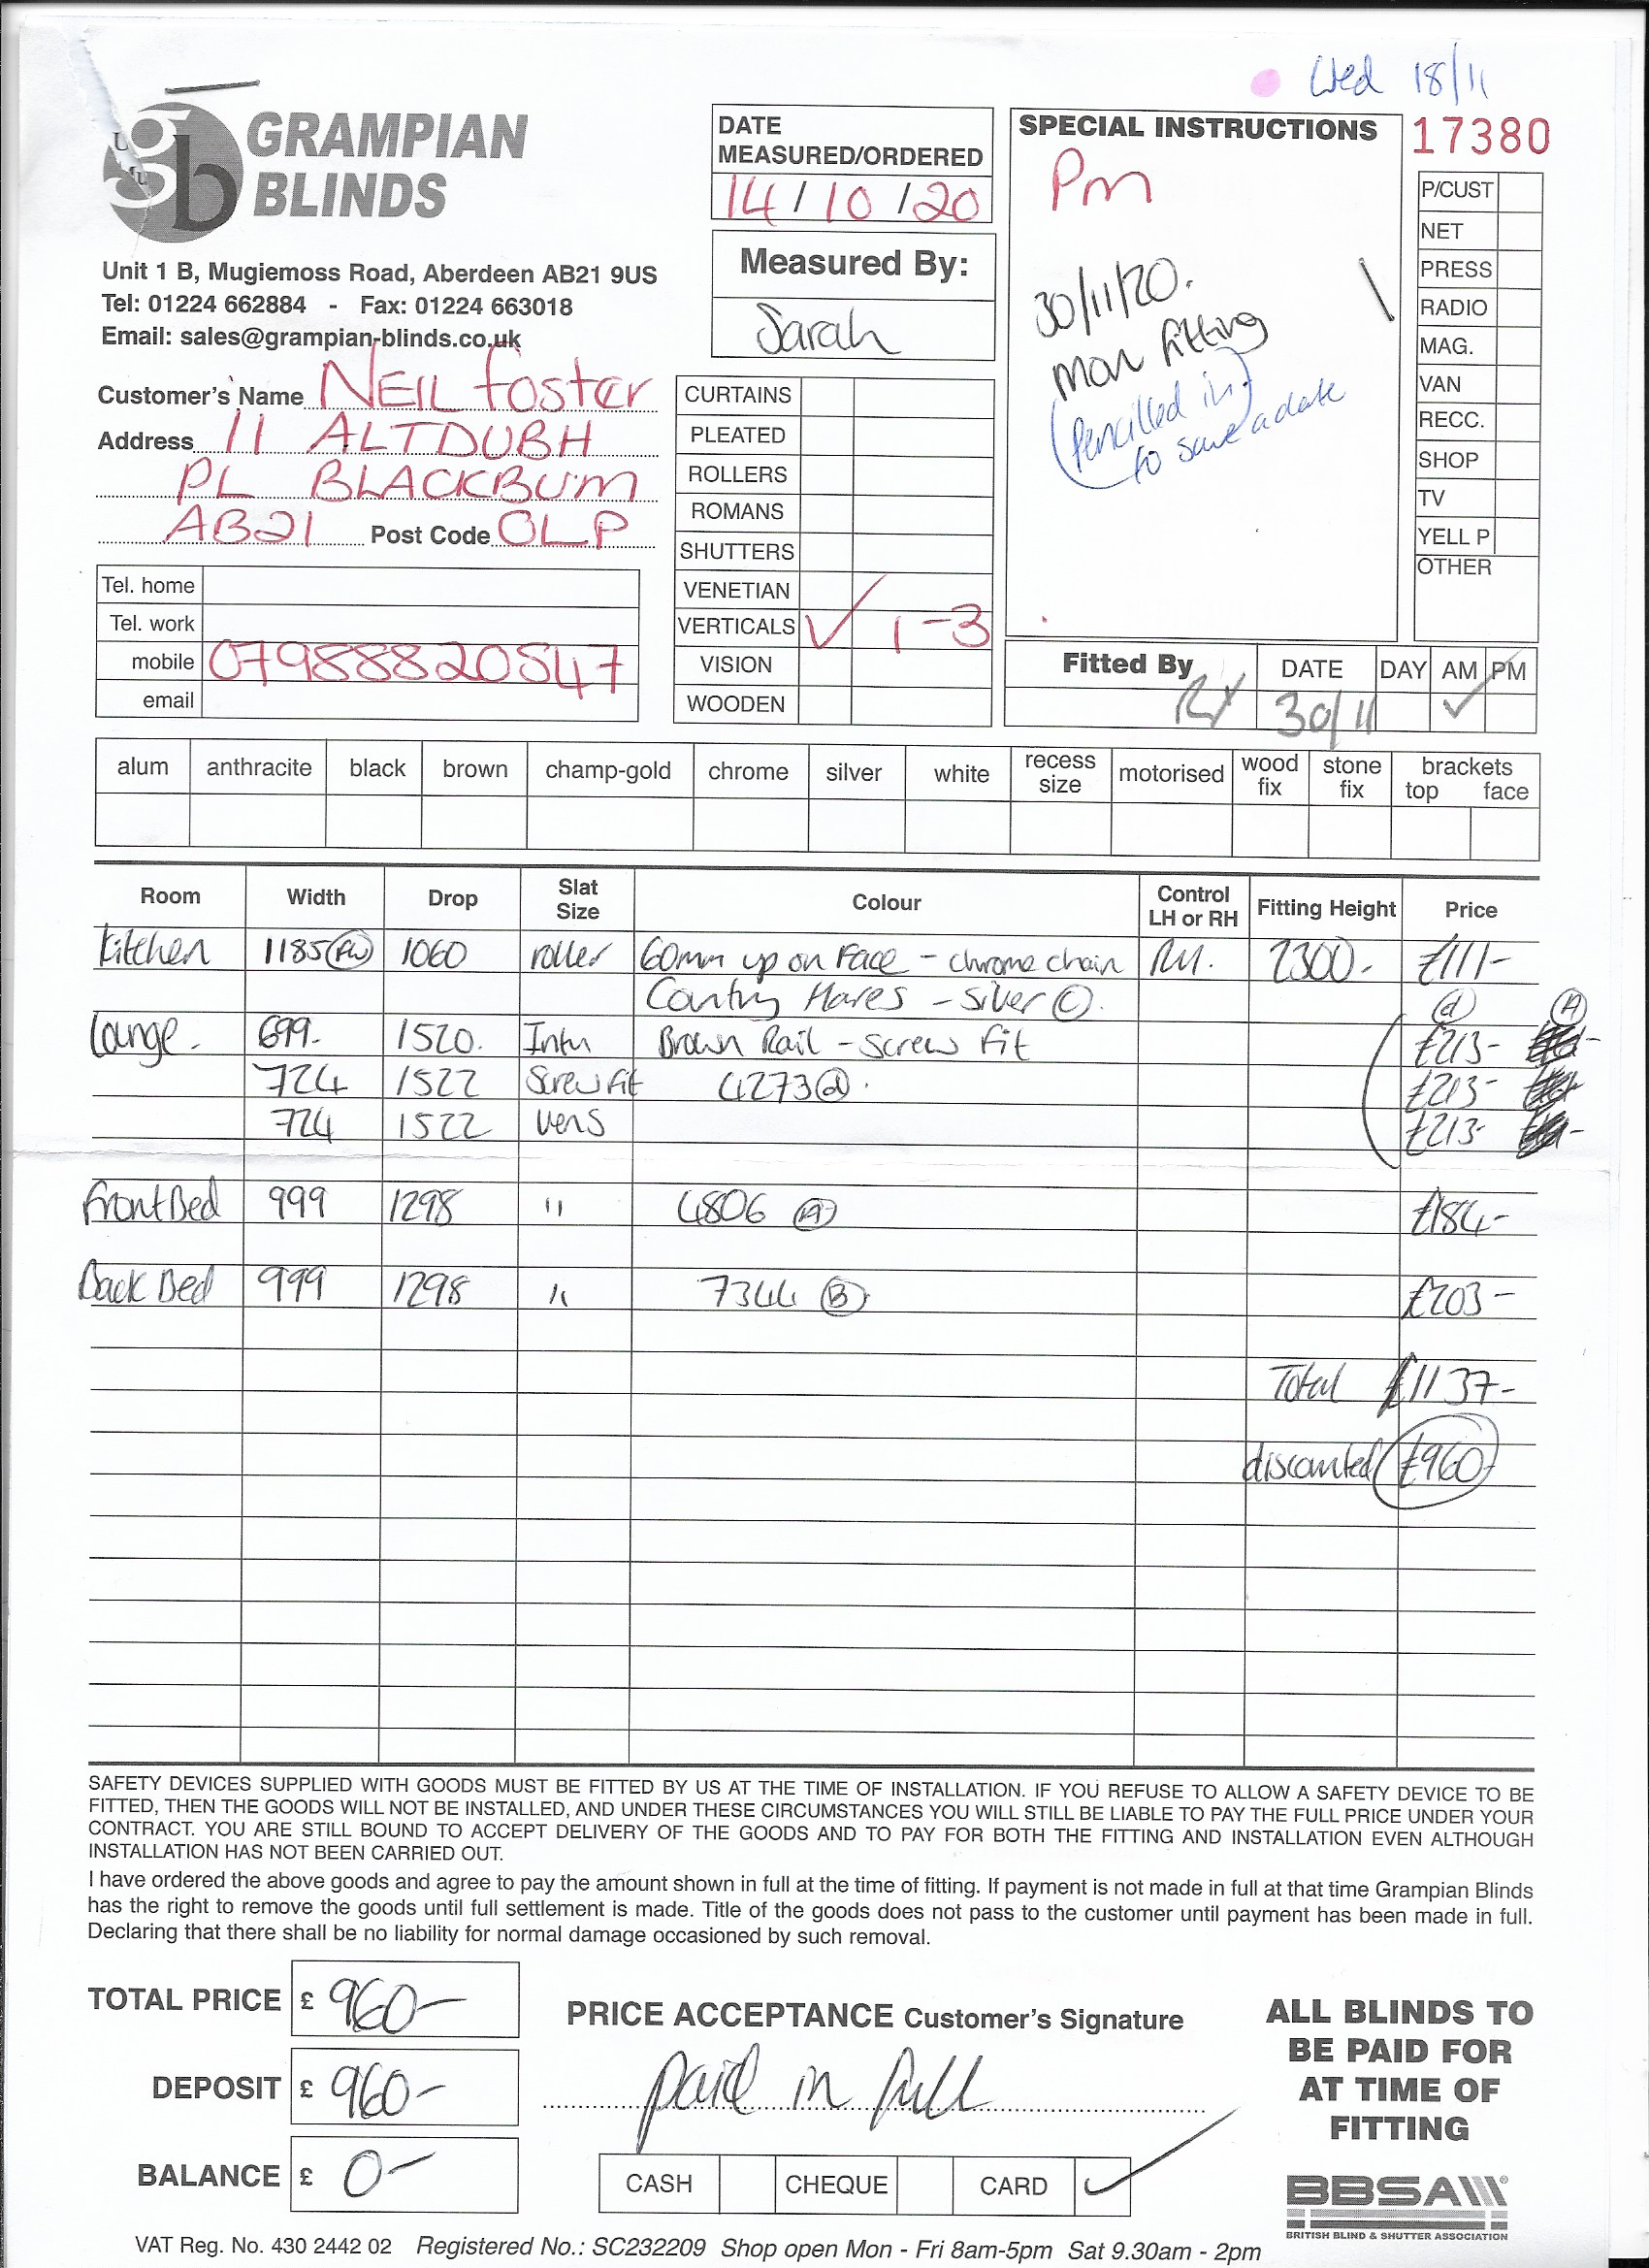 Wed 18/11
GRAMPIAN
BLINDS
Unit 1 B, Mugiemoss Road, Aberdeen AB21 9US
Tel: 01224 662884 - Fax: 01224 663018
Email: sales@grampian-blinds.co.uk
Customer's Name NEIL Foster
Address 11 ALTDUBH
PL BLACKBURN
AB21 Post Code OLP
Tel. home
Tel. work
mobile 07988820547
email
DATE
MEASURED/ORDERED
14/10/20
Measured By:
Sarah
CURTAINS
PLEATED
ROLLERS
ROMANS
SHUTTERS
VENETIAN
VERTICALS ✓ 1-3
VISION
WOODEN
SPECIAL INSTRUCTIONS
Pm
30/11/20.
Mon fitting
(Pencilled in)
to save a date
17380
P/CUST
NET
PRESS
RADIO
MAG.
VAN
RECC.
SHOP
TV
YELL P
OTHER
Fitted By DATE DAY AM PM
30/11 ✓
alum anthracite black brown champ-gold chrome silver white recess size motorised wood fix stone fix brackets top face
Room Width Drop Slat Size Colour Control LH or RH Fitting Height Price
Kitchen 1185 1060 roller 60mm up on Face - chrome chain RH. 2300. £111-
Country Hares - Silver (C).
(d) (A)
Lounge. 699. 1520. Intu Brown Rail - Screw Fit £213-
724 1522 Screw Fit 4273 (d). £213-
724 1522 Vens £213-
Front Bed 999 1298 " 4806 (A) £184-
Back Bed 999 1298 " 7344 (B) £203-
Total £1137-
discounted £960
SAFETY DEVICES SUPPLIED WITH GOODS MUST BE FITTED BY US AT THE TIME OF INSTALLATION. IF YOU REFUSE TO ALLOW A SAFETY DEVICE TO BE
FITTED, THEN THE GOODS WILL NOT BE INSTALLED, AND UNDER THESE CIRCUMSTANCES YOU WILL STILL BE LIABLE TO PAY THE FULL PRICE UNDER YOUR
CONTRACT. YOU ARE STILL BOUND TO ACCEPT DELIVERY OF THE GOODS AND TO PAY FOR BOTH THE FITTING AND INSTALLATION EVEN ALTHOUGH
INSTALLATION HAS NOT BEEN CARRIED OUT.
I have ordered the above goods and agree to pay the amount shown in full at the time of fitting. If payment is not made in full at that time Grampian Blinds
has the right to remove the goods until full settlement is made. Title of the goods does not pass to the customer until payment has been made in full.
Declaring that there shall be no liability for normal damage occasioned by such removal.
TOTAL PRICE £ 960-
DEPOSIT £ 960-
BALANCE £ 0-
PRICE ACCEPTANCE Customer's Signature
paid in full
CASH CHEQUE CARD ✓
ALL BLINDS TO
BE PAID FOR
AT TIME OF
FITTING
BBSA
BRITISH BLIND & SHUTTER ASSOCIATION
VAT Reg. No. 430 2442 02 Registered No.: SC232209 Shop open Mon - Fri 8am-5pm Sat 9.30am - 2pm